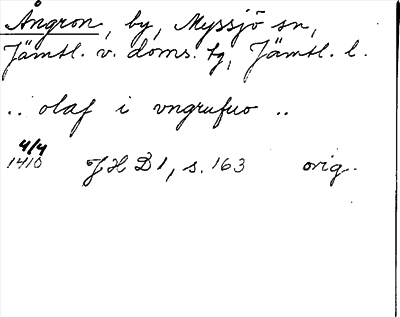 Ångron, by, Myssjö sn,
Jämtl. v. doms. tg, Jämtl. l.
.. olaf i vngrufuo ..
4/4
1410 JHD 1, s. 163 orig.